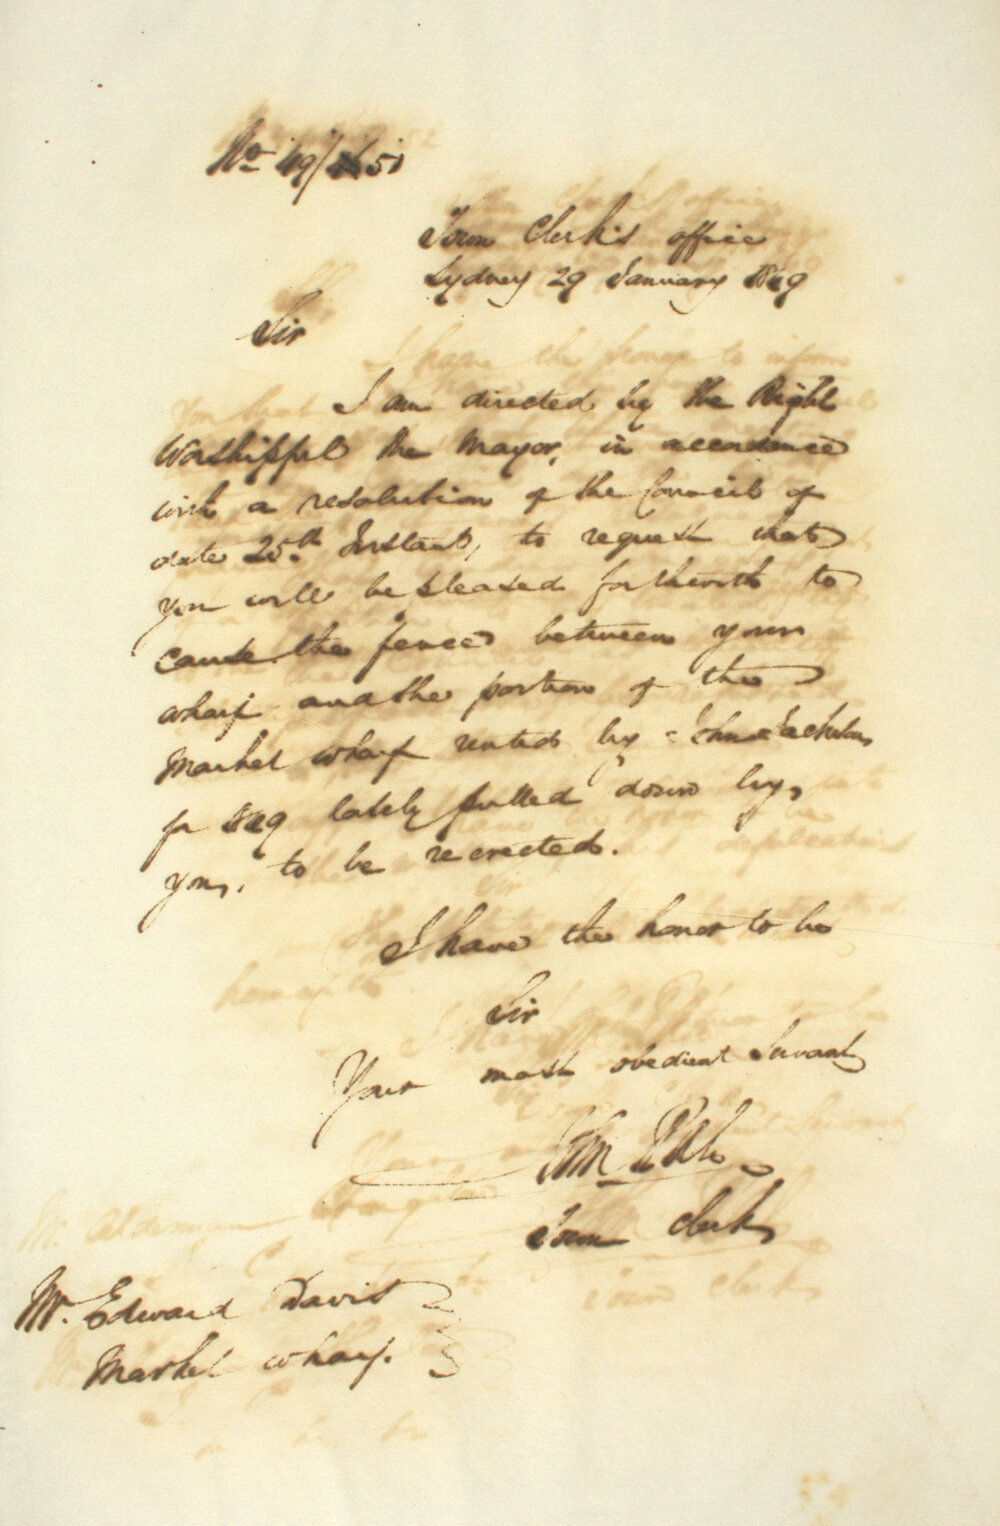 No 49/51
Town Clerk's office
Sydney 29 January 1849
Sir
I am directed by the Right
Worshipful the Mayor, in accordance
with a resolution of the Council of
date 25th Instant, to request that
you will be pleased forthwith to
cause the fence between your
wharf and the portion of the
Market Wharf rented by
for 1849 lately pulled down by
you, to be reerected.
I have the honor to be
Sir
Your most obedient Servant
John
Town Clerk
Mr. Edward Davis
Market Wharf.